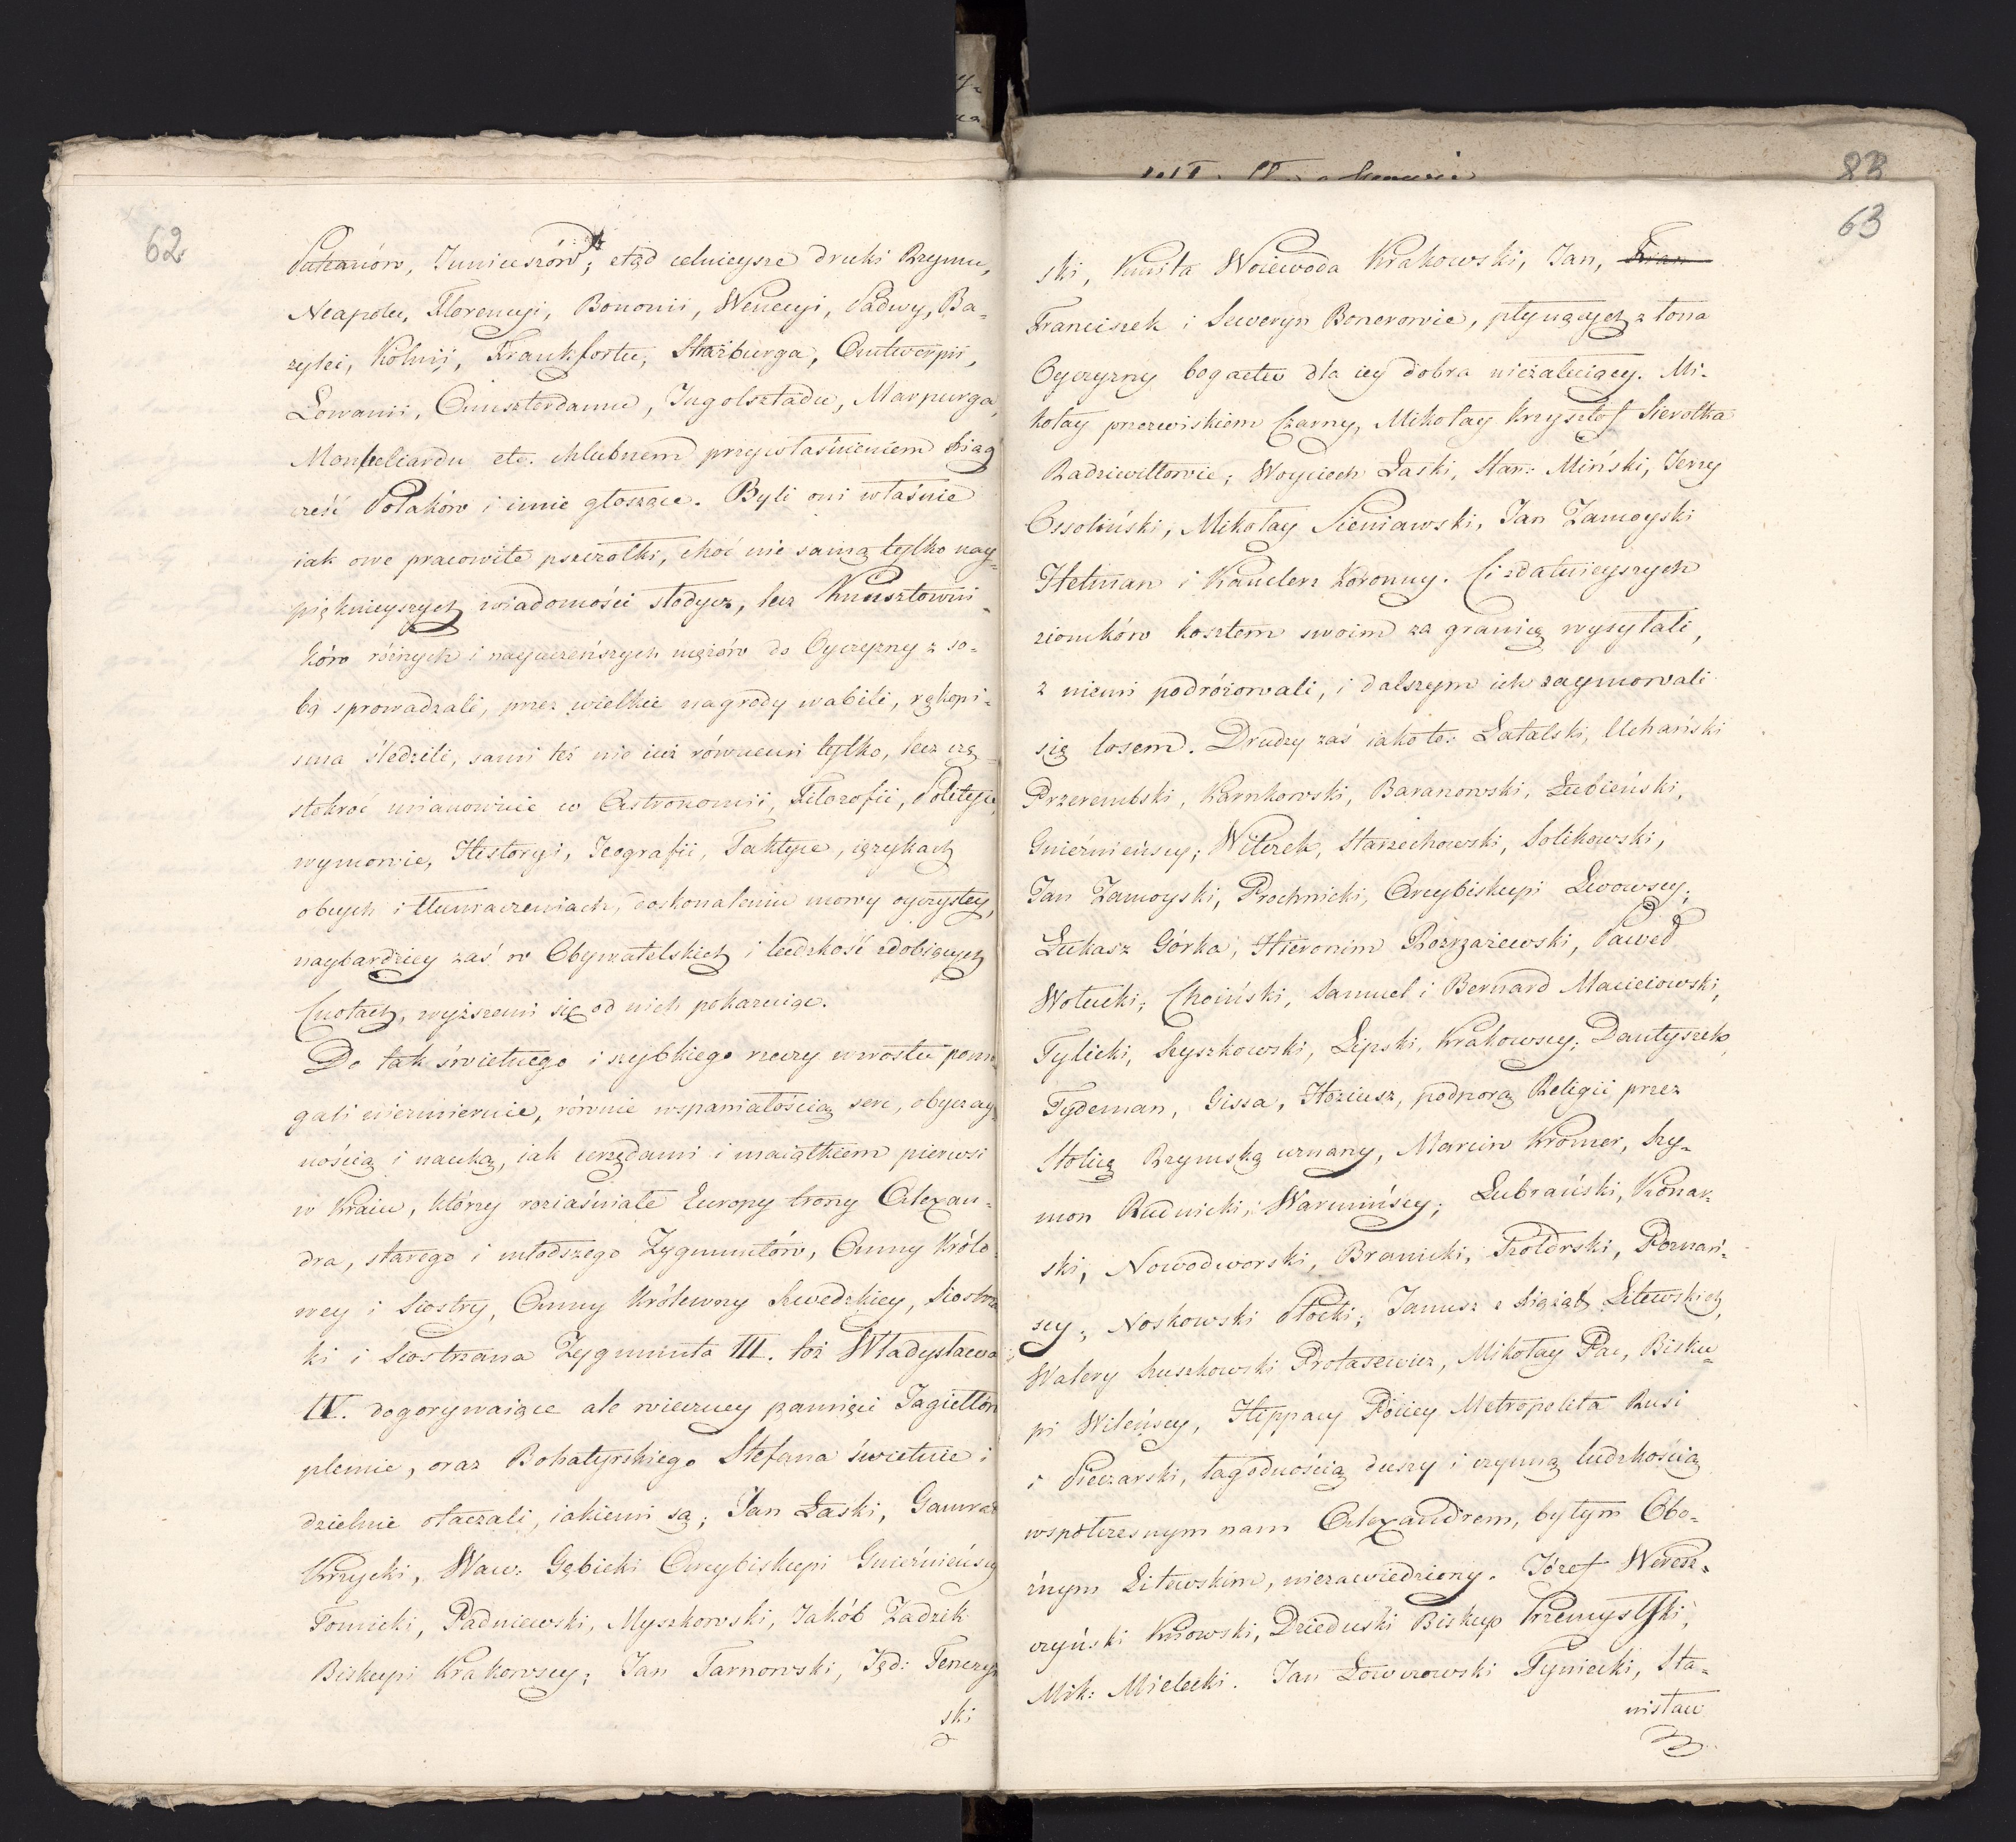 62
Patrarów, Juniuszów; stąd celnieysze druki Rzymu,
Neapolu, Florencyi, Bononii, Wenecyi, Padwy, Ba-
zylei, Kolnii, Frankfortu, Strażburga, Antwerpii,
Lowanii, Amszterdamu, Ingolsztadu, Marpurga,
Monpeliardu etc. chlubnem przywłaśnieniem ksiąg
cześć Polaków i imie głoszące. Byli oni właśnie
iak owe pracowite pszczołki, choć nie samą tylko nay-
pięknieyszych wiadomości słodycz, lecz Kunsztowni-
ków różnych i nayuczeńszych mężów do Oyczyzny z so-
bą sprowadzali, przez wielkie nagrody wabili, rękopi-
sma śledzili, sami też nie iuż równemi tylko, lecz czę-
stokroć mianowicie w Astronomii, Filozofii, Polityce,
wymowie, Historyi, Jeografii, Taktyce, ięzykach
obcych i tłumaczeniach, doskonaleniu mowy oyczystey,
naybardziey zaś w Obywatelskich i ludzkość zdobiących
Cnotach, wyższemi się od nich pokazuiąc.
Do tak świetnego i szybkiego rzeczy wzrostu poma-
gali niezmiernie, równie wspaniałością serc, obyczay-
nością i nauką, iak urzędami i maiątkiem pierwsi
w Kraiu, którzy roziaśniałe Europy trony Alexan-
dra, starego i młodszego Zygmuntów, Anny Królo-
wey i Siostry, Anny Królewny Szwedzkiey, Siostrzą
ki i Siostrzana Zygmunta III. toż Władysława
IV. dogorywaiące ale wieczney pamięci Jagiełłów
plemie, oraz Bohatyrskiego Stefana świetnie i
dzielnie otaczali, iakiemi są; Jan Łaski, Gamrat
Krzycki, Waw: Gębicki Arcybiskupi Gnieźnieńscy
Tomicki, Padniewski, Myszkowski, Jakób Zadzik
Biskupi Krakowscy; Jan Tarnowski, Jęd: Tenczyń
ski
83
63
ski, Kmita Woiewoda Krakowski, Jan, Fran
Franciszek i Seweryn Bonerowie, płynących z łona
Oyczyzny bogactw dla iey dobra nieżałuiący. Mi-
kołay przezwiskiem Czarny, Mikołay Krzysztof Sierotka
Radziwiłłowie; Woyciech Łaski, Stan: Miński, Jerzy
Ossoliński, Mikołay Sieniawski, Jan Zamoyski
Hetman i Kanclerz Koronny. Ci zdatnieyszych
ziomków kosztem swoim za granicę wysyłali,
z niemi podróżowali, i dalszym ich zaymowali
się losem. Drudzy zaś iakoto: Latalski, Uchański
Przerembski, Karnkowski, Baranowski, Łubieński,
Gnieźnieńscy; Wilczek, Starzechowski, Solikowski,
Jan Zamoyski, Prochnicki, Arcybiskupi Lwowscy;
Łukasz Górka, Hieronim Rozrażewski, Paweł
Wołucki; Choiński, Samuel i Bernard Macieiowski,
Tylicki, Szyszkowski, Lipski, Krakowscy; Dantyszek,
Tydeman, Gissa, Hoziusz, podporą Religii przez
Stolicę Rzymską uznany, Marcin Kromer, Szy-
mon Rudnicki, Warmińscy; Lubrański, Konar-
ski, Nowodworski, Branicki, Tzołdrski, Poznań-
scy; Noskowski Płocki; Janusz z Xiążąt Litewskich,
Walery Suszkowski Protasewicz, Mikołay Pac, Bisku-
pi Wileńscy, Hippacy Pociey Metropolita Rusi
i Pieczarski, łagodnością duszy i czynną ludzkością
wspołczesnym nam Alexandrem, byłym Obo-
źnym Litewskim, niezawiedziony. Józef Weresz-
czyński Kiiowski, Dzieduski Biskup Przemyslski,
Mik: Mielecki. Jan Łowczowski Tyniecki, Sta-
nisław